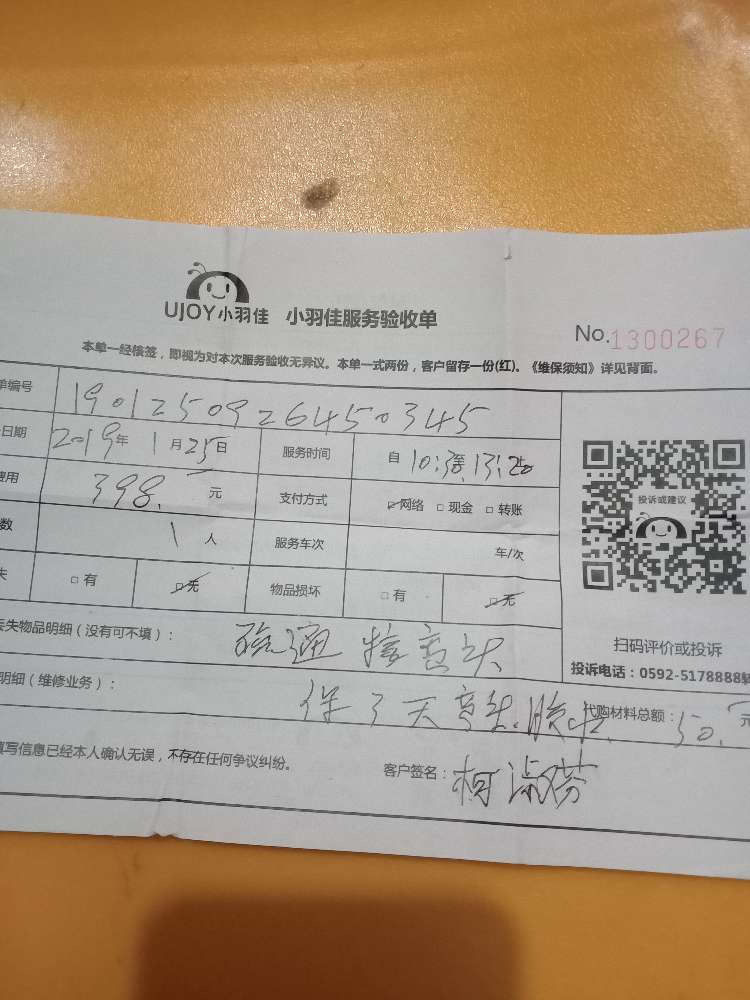 UJOY小羽佳 小羽佳服务验收单
No.1300267
本单一经核签，即视为对本次服务验收无异议。本单一式两份，客户留存一份(红)。《维保须知》详见背面。
单编号 190125092645 0345
日期 2019年1月25日 服务时间 自 10:30至 13:20
费用 398.元 支付方式 网络 现金 转账
数 1人 服务车次 车/次
失 有 无 物品损坏 有 无
投诉或建议
丢失物品明细（没有可不填）：
扫码评价或投诉
投诉电话：0592-5178888转
明细（维修业务）： 代购材料总额：50.元
填写信息已经本人确认无误，不存在任何争议纠纷。
客户签名：柯淑芬